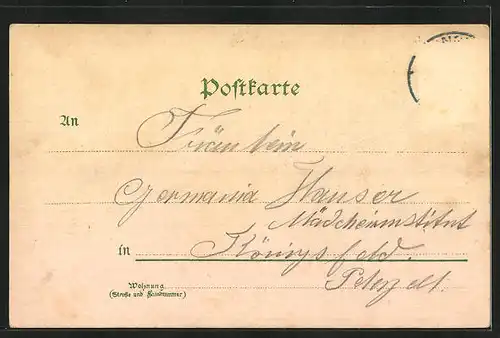 Postkarte
An
Fräulein
Germania Hauser
Mädcheninstitut
in Königsfeld.
Peterzell.
Wohnung
(Straße und Hausnummer)